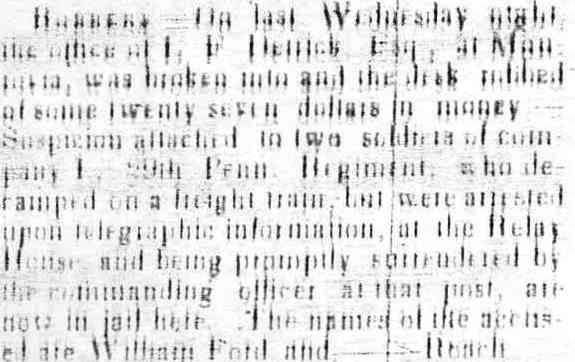 Robbery—On last Wednesday night,
the office of J. F Detrick Esq, at Mon-
rovia, was broken into and the desk robbed
of some twenty seven dollars in money —
Suspicion attached to two soldiers of com-
pany I, 29th Penn. Regiment, who de-
camped on a freight train, but were arrested
upon telegraphic information, at the Relay
House, and being promptly surrendered by
the commanding officer at that post, are
now in jail here. The names of the accus-
ed are William Ford and Roach